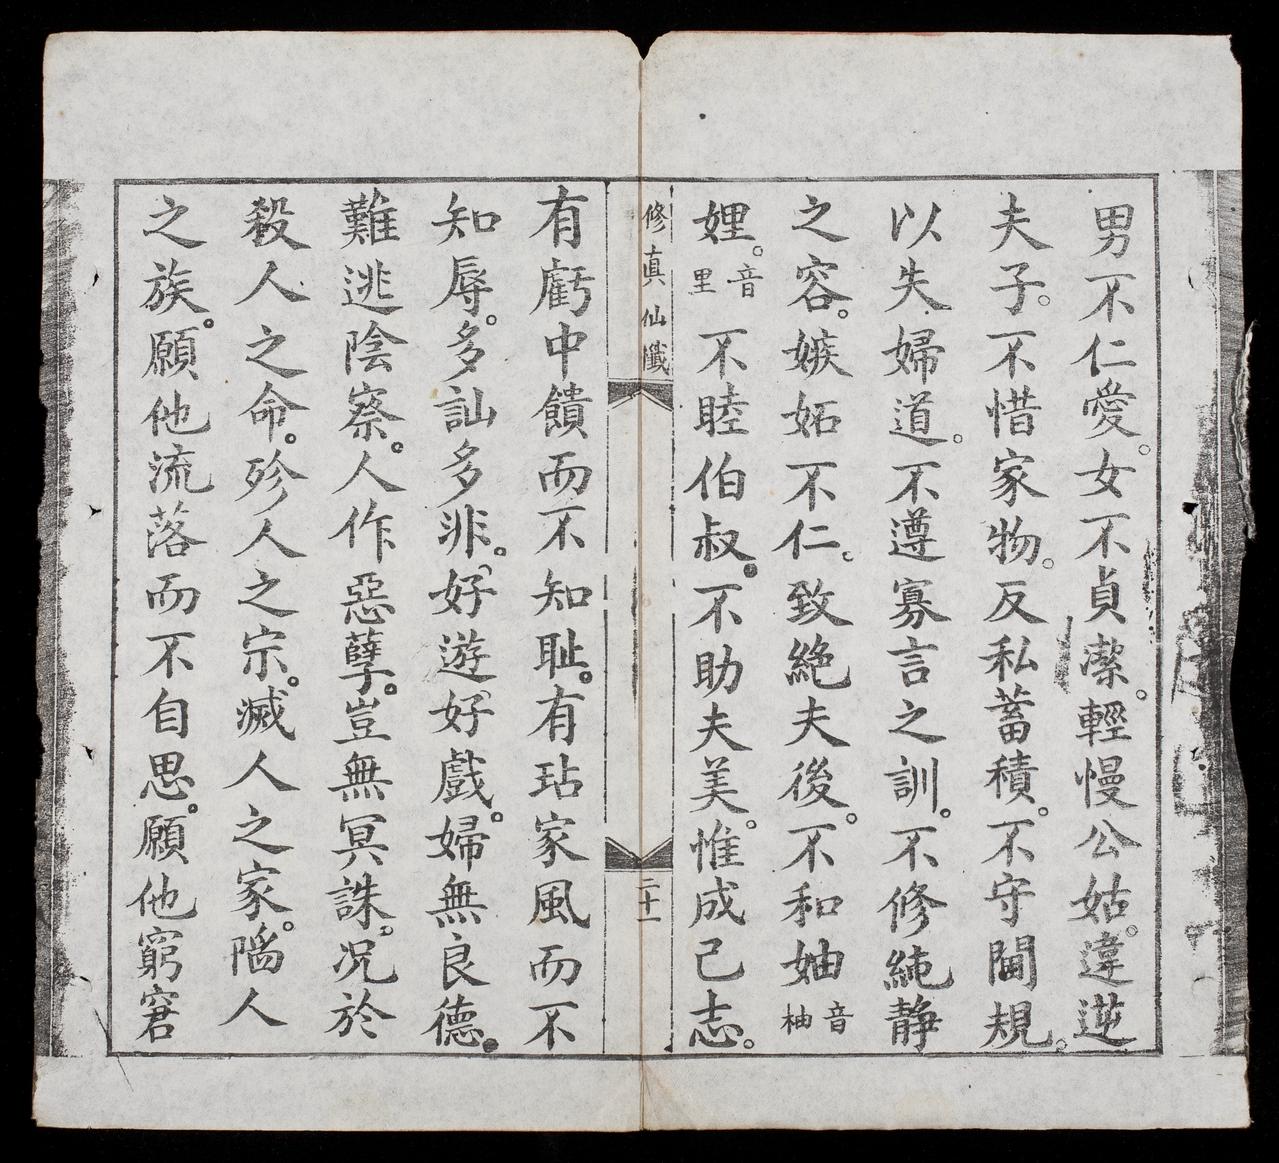 男不仁愛。女不貞潔。輕慢公姑。違逆
夫子。不惜家物。反私蓄積。不守閫規。
以失婦道。不遵寡言之訓。不修純靜
之容。嫉妬不仁。致絕夫後。不和妯音柚
娌。音里不睦伯叔。不助夫美。惟成己志。
修真仙懺
二十一
有虧中饋而不知耻。有玷家風而不
知辱。多訕多非。好遊好戲。婦無良德。
難逃陰察。人作惡孽。豈無冥誅。况於
殺人之命。殄人之宗。滅人之家。陷人
之族。願他流落而不自思。願他窮窘